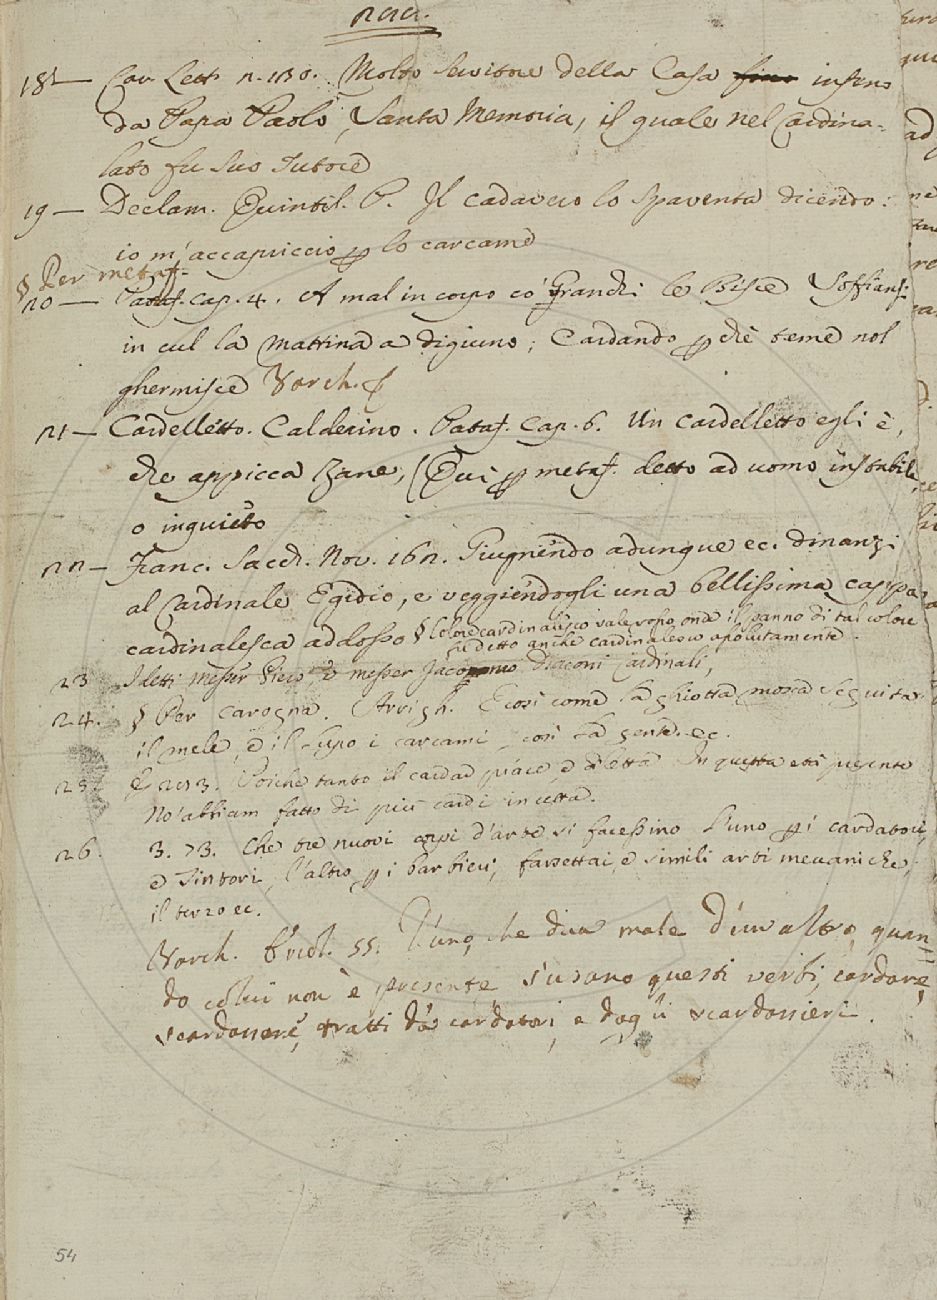 18 — Car. Lett. n. 130. Molto servitore della Casa fino insino
da Papa Paolo, Santa Memoria, il quale nel Cardina-
lato fu suo Tutore
19 — Declam. Quintil. P. Il cadavero lo spaventa dicendo:
io m'accapriccio p lo carcame
§ Per metaf.
20 — Pataf. cap. 4. A mal in corpo co' Granchi le Bisce Soffiansi
in cul la mattina a digiuno; Cardando p che teme nol
ghermisce Varch.
21 — Cardelletto. Calderino. Pataf. Cap. 6. Un cardelletto egli è,
che appicca Zane, (Qui p metaf. detto ad uomo instabile,
o inquieto
22 — Franc. Sacch. Nov. 162. Giugnendo adunque ec. dinanzi
al Cardinale Egidio, e veggiendogli una bellissima cappa
cardinalesca addosso § Colore cardinalesco vale roso, onde il panno di tal colore
fu detto anche cardinalesco assolutamente.
23 I detti messer Piero, e messer Jacopo Diaconi Cardinali,
24. § Per carogna. Arrigh. E così come la ghiotta mosca seguita
il mele, e il Lupo i carcami, così la gente. ec.
25. 203. Poiche tanto il cardar piace, e diletta In questa età presente
No' abbiam fatto di più cardi incetta.
26. 3. 73. Che tre nuovi corpi d'arte si facessino L'uno p i cardatori,
e Tintori, l'altro p i barbieri, farsettai, e simili arti meccaniche,
il terzo ec.
Varch. Ercol. 55. D'uno, che dica male d'un altro, quan-
do colui non è presente s'usano questi verbi, cardare,
scardassare, tratti da' cardatori, e dagli scardassieri.
54